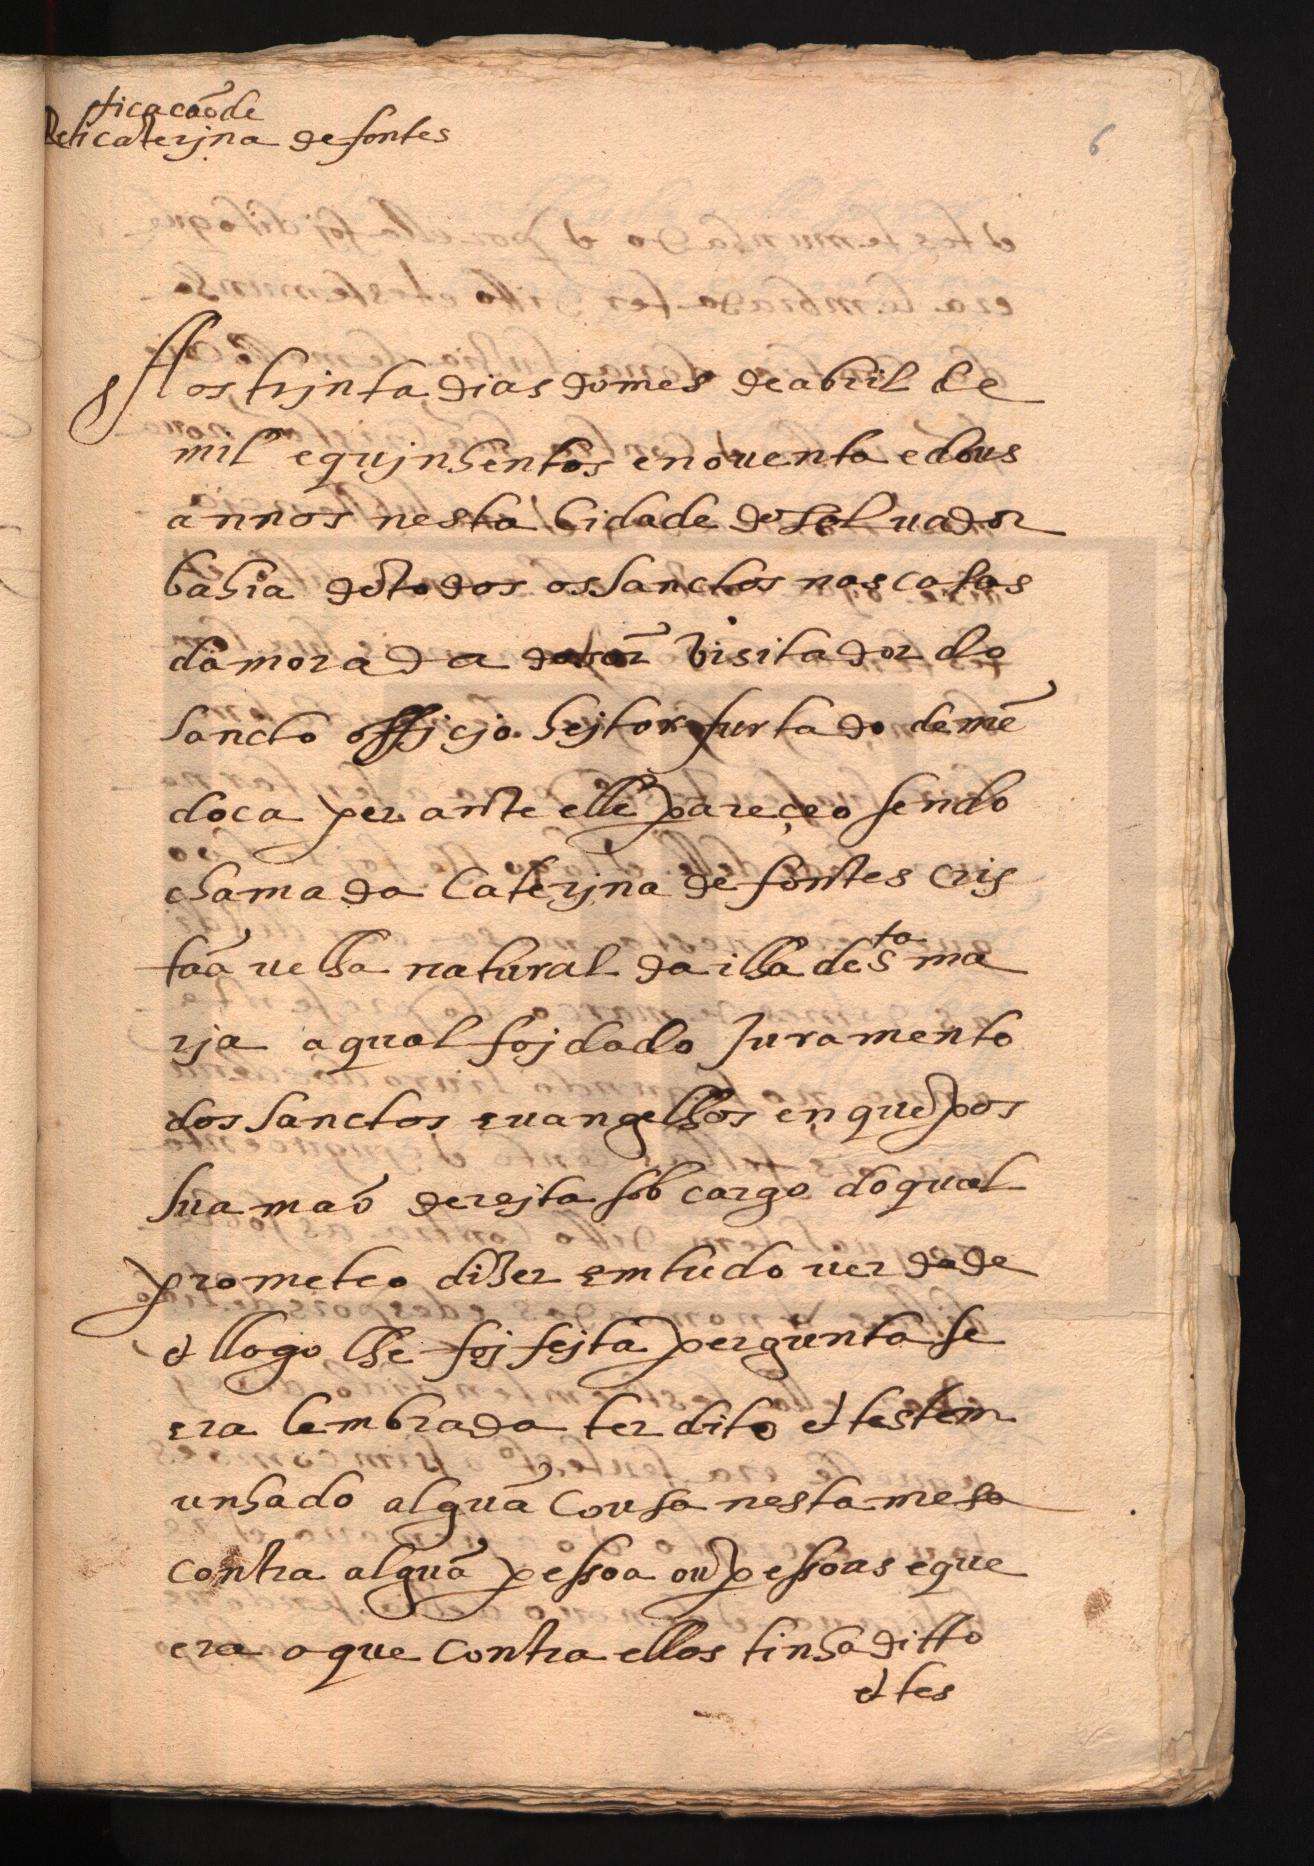 ticacaõ de
Reti caterjna de fontes
6
Aos trjnta dias do mes de abril de
mil e qujnhentos e nouenta e dous
annos nesta Cidade do Saluador
bahia de todos os Sanctos nas casas
da morada do sor Visitador do
Sancto officjo hejtor furtado de mẽ
doca perante elle pareçeo sendo
chamada Caterjna de fontes cris
taã uelha natural da ilha de Sta ma
rja a qual foj dado Juramento
dos Sanctos euangelhos en que pos
sua maõ derejta sob cargo do qual
prometeo dizer em tudo uerdade
et llogo lhe foj fejta pergunta se
era lembrada ter dito et testem
unhado alguã Cousa nesta mesa
contra alguã pessoa ou pessoas e que
era o que contra ellas tinha ditto
et tes